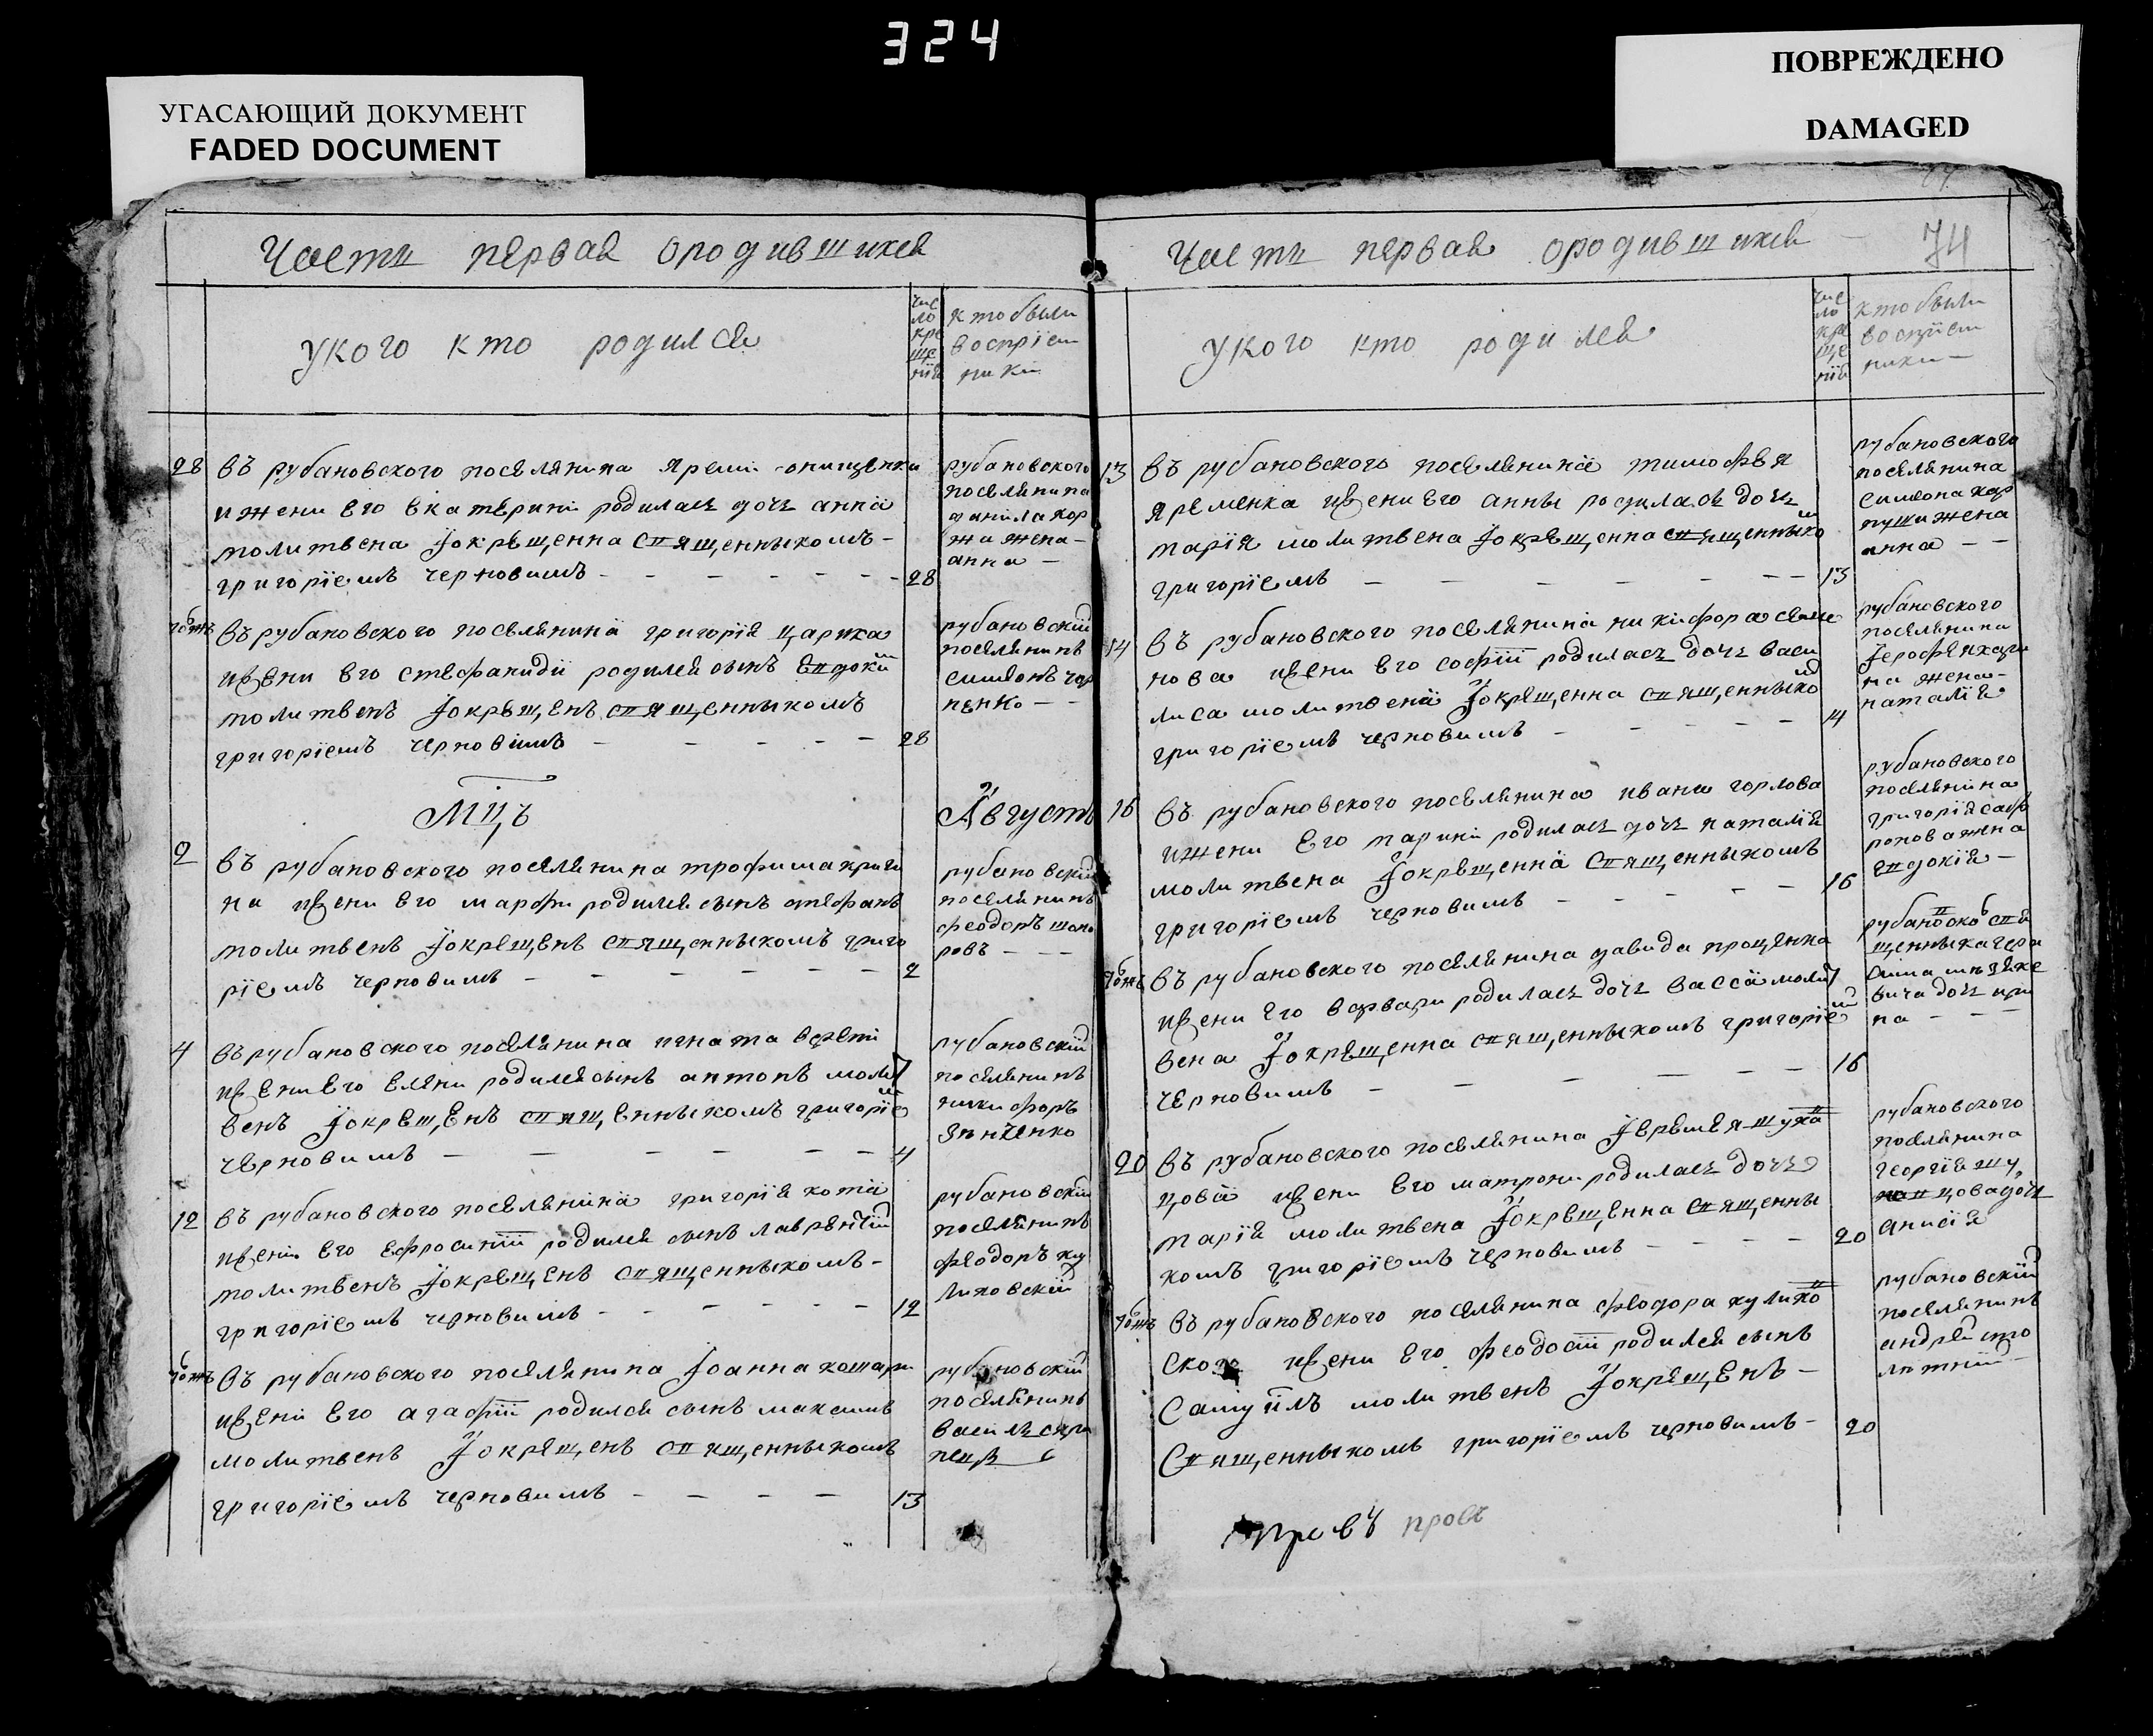 324
УГАСАЮЩИЙ ДОКУМЕНТ
FADED DOCUMENT
ПОВРЕЖДЕНО
DAMAGED
Часть первая ородившихся
у кого кто родился
число крещенія
кто были
воспріем
ники
28 въ рубановского поселянина яреми онищенка
ижени его екатерини родилась дочь анна
молитвена іокрещенна священникомъ
григоріемъ черновимъ 28
рубановского
поселянина
данила кор
жа жена
анна
тогожъ въ рубановского поселянина григорія царика
ижени его стефанидіи родился сынъ евдоким
молитвенъ іокрещенъ священникомъ
григоріемъ черновимъ 28
рубановскій
поселянинъ
симеонъ чер
ненко
Мцъ Августъ
2 въ рубановского поселянина трофима криги
на ижени его марфи родился сынъ стефанъ
молитвенъ іокрещенъ священникомъ григо
ріемъ черновимъ 2
рубановскій
поселянинъ
феодоръ шапо
ровъ
4 въ рубановского поселянина игната верети
ижени его елени родился сынъ антонъ молит
венъ іокрещенъ священникомъ григоріем
черновимъ 4
рубановскій
поселянинъ
никифоръ
зинченко
12 въ рубановского поселянина григорія котта
ижени его ефросиніи родился сынъ лаврентій
молитвенъ іокрещенъ священникомъ
григоріемъ черновимъ 12
рубановскій
поселянинъ
феодоръ ку
ликовскій
тогожъ въ рубановского поселянина іоанна кошари
ижени его агафіи родился сынъ максимъ
молитвенъ іокрещенъ священникомъ
григоріемъ черновимъ 13
рубановскій
поселянинъ
василь
Часть первая ородившихся 74
у кого кто родился
число крещенія
кто были
воспріем
ники
13 въ рубановского поселянина тимофея
яременка ижени его анны родилась дочь
марія молитвена іокрещенна священником
григоріемъ 13
рубановского
поселянина
симеона кар
пуши жена
анна
14 въ рубановского поселянина никифора семе
нова ижени его софіи родилась дочь васи
лиса молитвена іокрещенна священником
григоріемъ черновимъ 14
рубановского
поселянина
іерофея кари
на жена
наталія
16 въ рубановского поселянина ивана горлова
ижени его марини родилась дочь наталія
молитвена іокрещенна священникомъ
григоріемъ черновимъ 16
рубановского
поселянина
григорія саф
ронова жена
евдокія
тогожъ въ рубановского поселянина давида проценка
ижени его варвари родилась дочь васса молит
вена іокрещенна священникомъ григоріем
черновимъ 16
рубановског свя
щенника гера
сима
вича дочь ири
на
20 въ рубановского поселянина іеремея шухав
цова ижени его матрони родилась дочь
марія молитвена іокрещенна священни
комъ григоріемъ черновимъ 20
рубановского
поселянина
георгія шу
цова дочь
анисія
тогожъ въ рубановского поселянина феодора кулико
ского ижени его феодосіи родился сынъ
самуилъ молитвенъ іокрещенъ
священникомъ григоріемъ черновимъ 20
рубановскій
поселянинъ
андрей сто
лятній